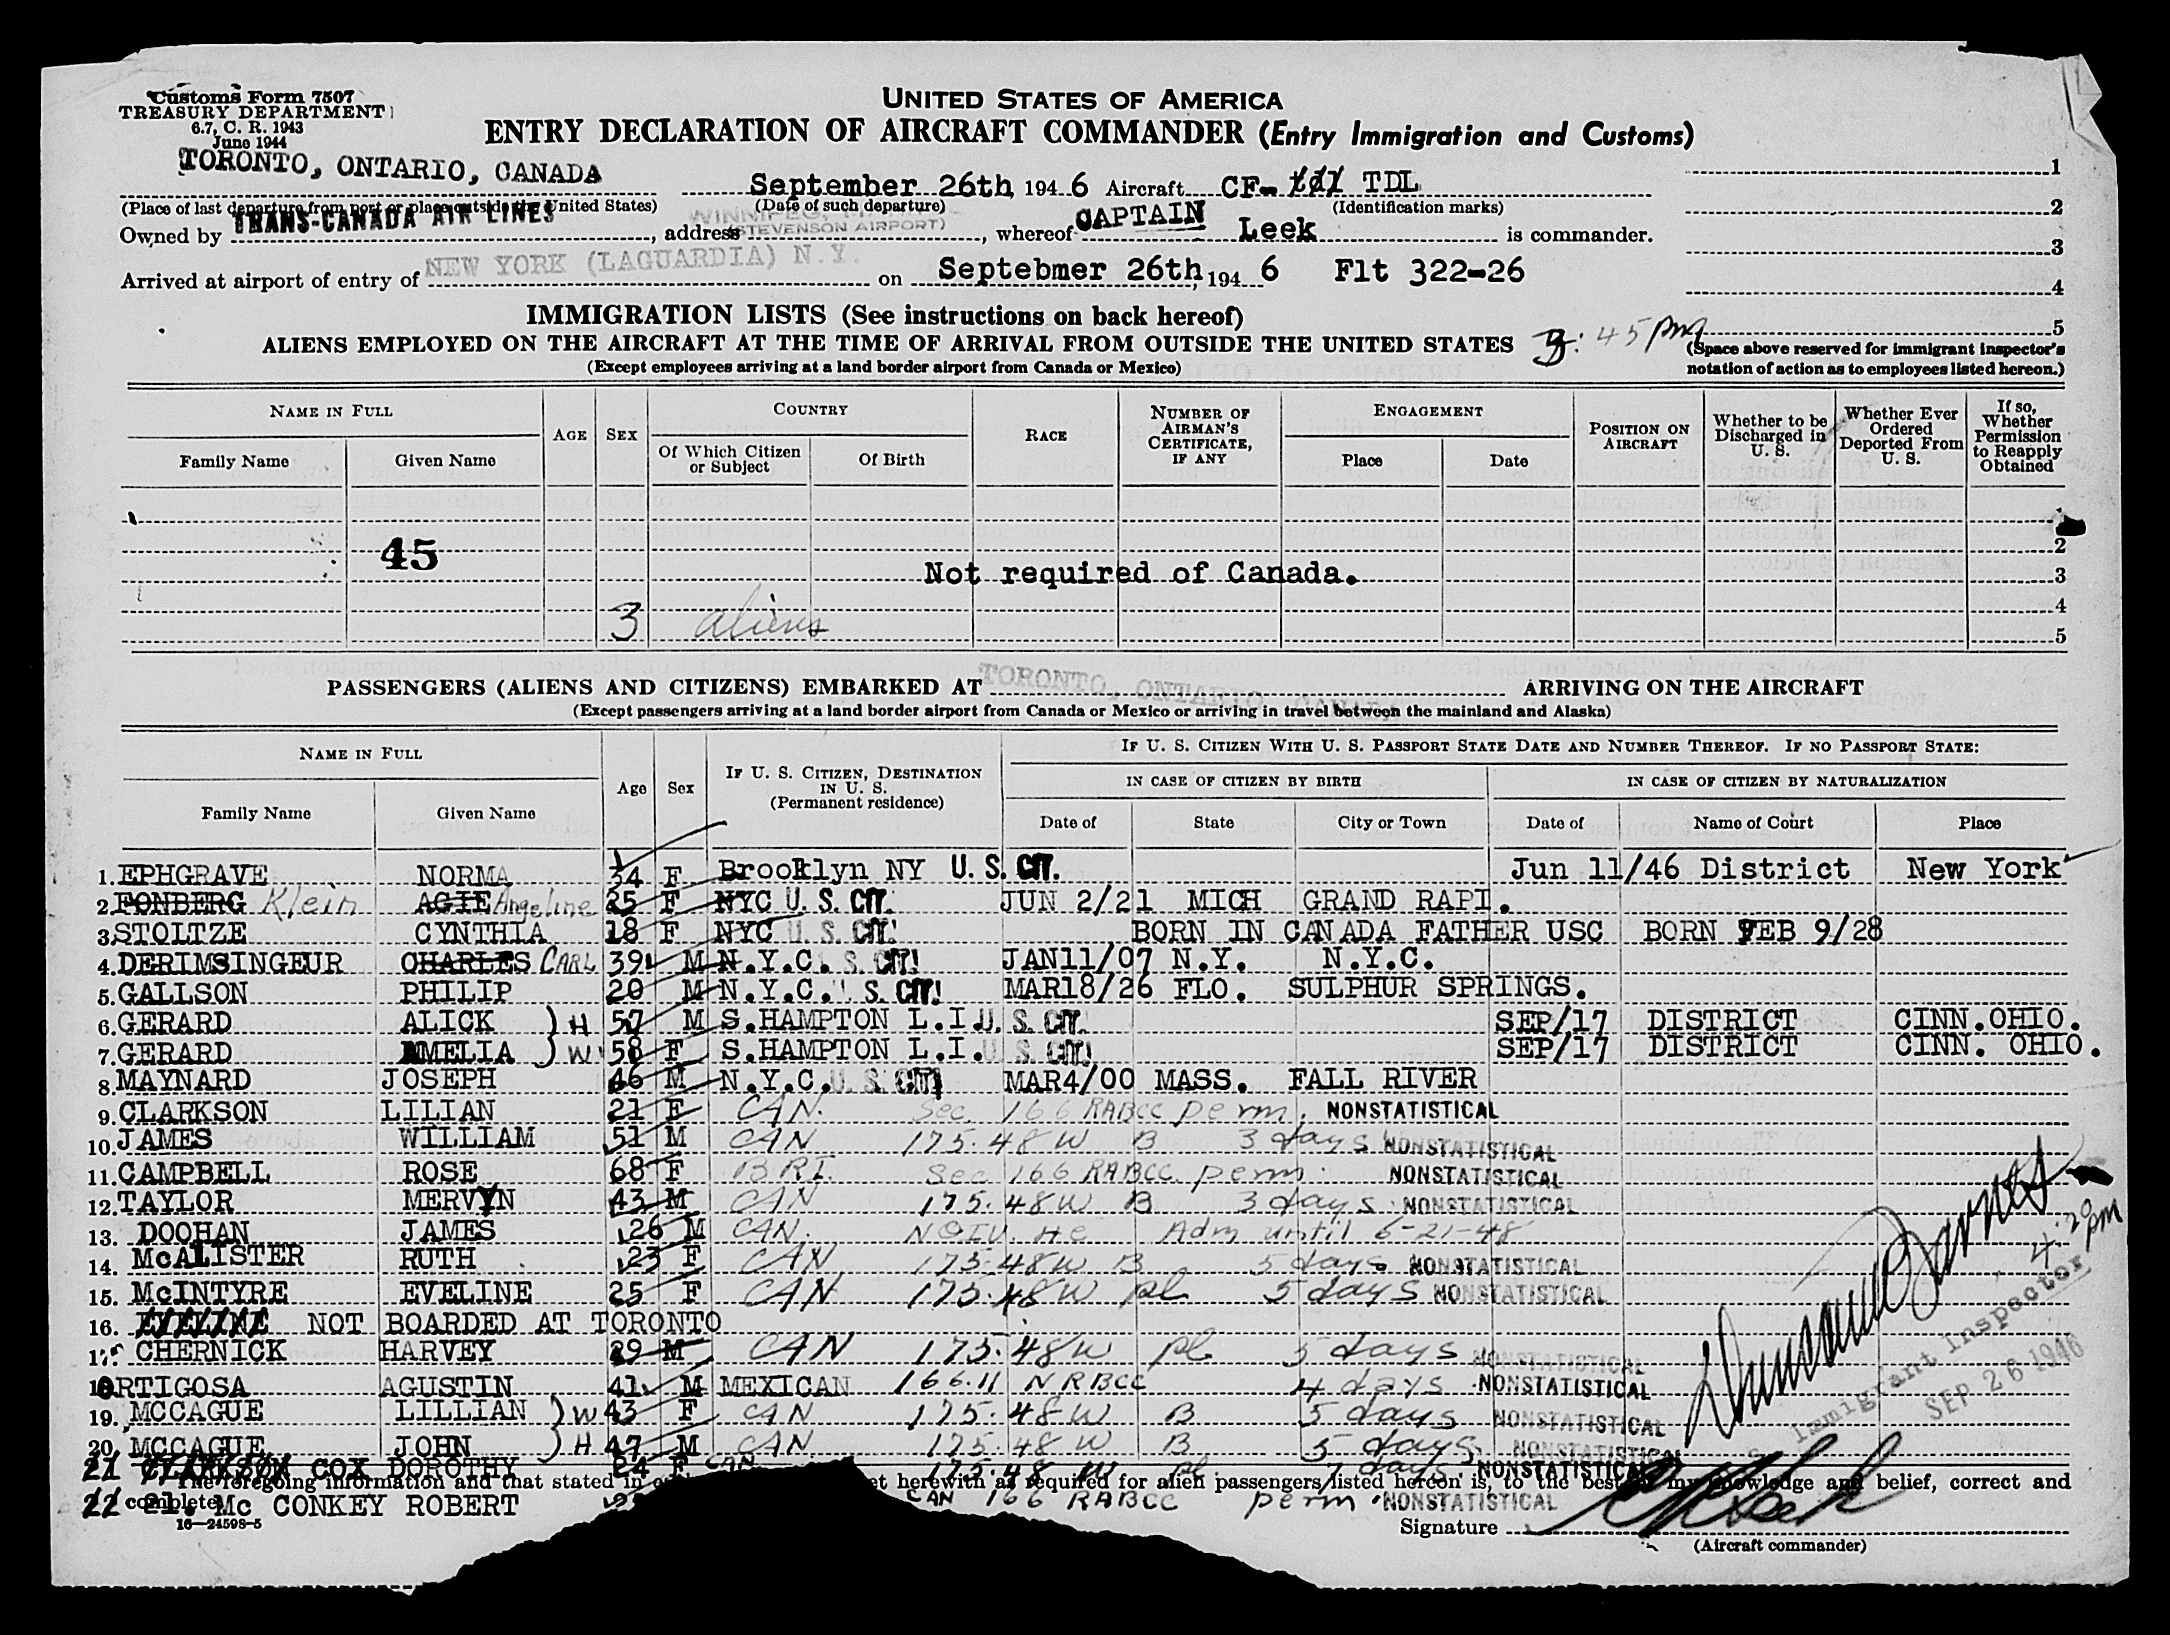 Customs Form 7507
TREASURY DEPARTMENT
6.7, C. R. 1943
June 1944
UNITED STATES OF AMERICA
ENTRY DECLARATION OF AIRCRAFT COMMANDER (Entry Immigration and Customs)
TORONTO, ONTARIO, CANADA September 26th, 194 6 Aircraft CF- TDL
(Place of last departure from port or place outside the United States) (Date of such departure) (Identification marks)
Owned by TRANS-CANADA AIR LINES, address WINNIPEG, (STEVENSON AIRPORT), whereof CAPTAIN Leek is commander.
Arrived at airport of entry of NEW YORK (LAGUARDIA) N.Y. on Septebmer 26th, 194 6 Flt 322-26
1
2
3
4
5
IMMIGRATION LISTS (See instructions on back hereof)
ALIENS EMPLOYED ON THE AIRCRAFT AT THE TIME OF ARRIVAL FROM OUTSIDE THE UNITED STATES 3:45 pm
(Except employees arriving at a land border airport from Canada or Mexico)
(Space above reserved for immigrant inspector's notation of action as to employees listed hereon.)
NAME IN FULL AGE SEX COUNTRY RACE NUMBER OF AIRMAN'S CERTIFICATE, IF ANY ENGAGEMENT POSITION ON AIRCRAFT Whether to be Discharged in U. S. Whether Ever Ordered Deported From U. S. If so, Whether Permission to Reapply Obtained
Family Name Given Name Of Which Citizen or Subject Of Birth Place Date
45 2
Not required of Canada. 3
4
3 aliens 5
PASSENGERS (ALIENS AND CITIZENS) EMBARKED AT TORONTO, ONTARIO, CANADA ARRIVING ON THE AIRCRAFT
(Except passengers arriving at a land border airport from Canada or Mexico or arriving in travel between the mainland and Alaska)
NAME IN FULL Age Sex IF U. S. CITIZEN, DESTINATION IN U. S. (Permanent residence) IF U. S. CITIZEN WITH U. S. PASSPORT STATE DATE AND NUMBER THEREOF. IF NO PASSPORT STATE:
IN CASE OF CITIZEN BY BIRTH IN CASE OF CITIZEN BY NATURALIZATION
Family Name Given Name Date of State City or Town Date of Name of Court Place
1. EPHGRAVE NORMA 34 F Brooklyn NY U. S. CIT. Jun 11/46 District New York
2. FONBERG Klein AGIE Angeline 25 F NYC U. S. CIT. JUN 2/21 MICH GRAND RAPI.
3. STOLTZE CYNTHIA 18 F NYC U. S. CIT. BORN IN CANADA FATHER USC BORN FEB 9/28
4. DERIMSINGEUR CHARLES CARL 39 M N.Y.C. S. CIT. JAN11/07 N.Y. N.Y.C.
5. GALLSON PHILIP 20 M N.Y.C. U. S. CIT. MAR18/26 FLO. SULPHUR SPRINGS.
6. GERARD ALICK ) H 57 M S.HAMPTON L.I. U. S. CIT. SEP/17 DISTRICT CINN.OHIO.
7. GERARD AMELIA ) W 58 F S.HAMPTON L.I. U. S. CIT. SEP/17 DISTRICT CINN. OHIO.
8. MAYNARD JOSEPH 46 M N.Y.C. U. S. CIT. MAR4/00 MASS. FALL RIVER
9. CLARKSON LILIAN 21 F CAN. Sec 166 RABCC perm. NONSTATISTICAL
10. JAMES WILLIAM 51 M CAN 175.48W B 3 days NONSTATISTICAL
11. CAMPBELL ROSE 68 F BRI. Sec 166 RABCC perm. NONSTATISTICAL
12. TAYLOR MERVYN 43 M CAN 175.48W B 3 days NONSTATISTICAL
13. DOOHAN JAMES 26 M CAN. NQIV. He Adm until 6-21-48
14. McALISTER RUTH 23 F CAN 175.48W B 5 days NONSTATISTICAL
15. McINTYRE EVELINE 25 F CAN 175.48W pl 5 days NONSTATISTICAL
16. EVELINE NOT BOARDED AT TORONTO
17. CHERNICK HARVEY 29 M CAN 175.48W pl 5 days NONSTATISTICAL
18. ORTIGOSA AGUSTIN 41 M MEXICAN 166.11 NRBCC 4 days NONSTATISTICAL
19. MCCAGUE LILLIAN ) W 43 F CAN 175.48W B 5 days NONSTATISTICAL
20. MCCAGUE JOHN ) H 47 M CAN 175.48W B 5 days NONSTATISTICAL
21 CLARKSON COX DOROTHY 24 F CAN 175.48 W pl 7 days NONSTATISTICAL
The foregoing information and that stated in herewith as required for alien passengers listed hereon is, to the best my knowledge and belief, correct and complete.
22 21. Mc CONKEY ROBERT CAN 166 RABCC perm NONSTATISTICAL
16—24598-5
Signature
(Aircraft commander)
4:20 pm
Immigrant Inspector
SEP 26 1946